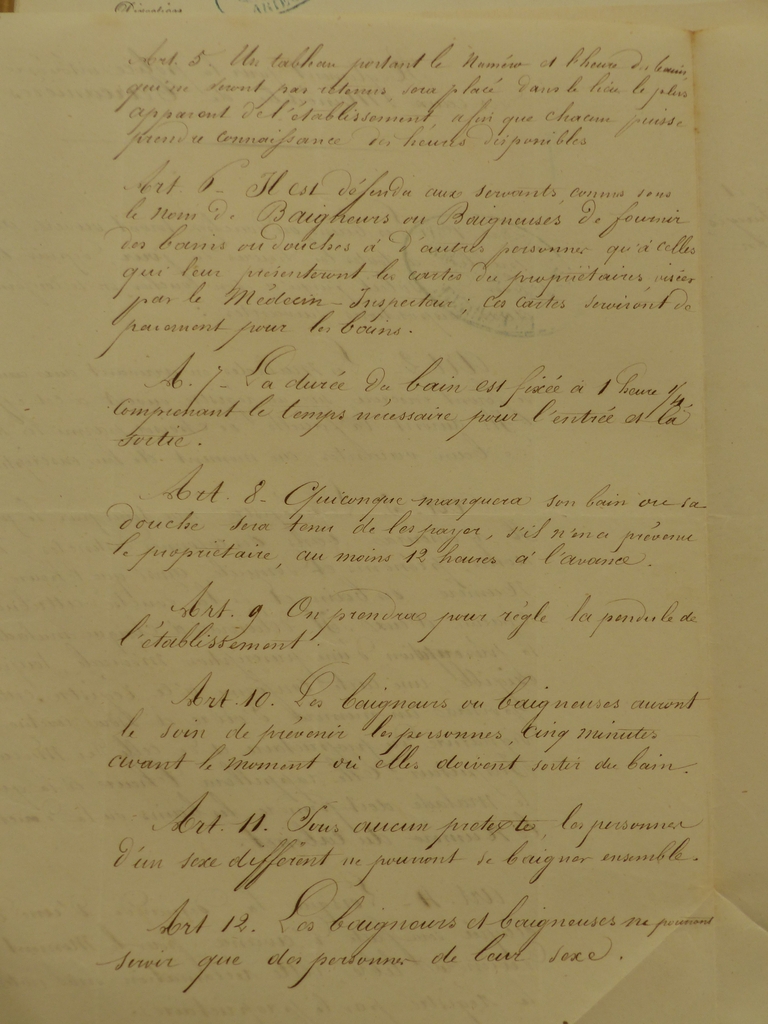 Directions
Art. 5. Un tableau portant le Numéro et l'heure des bains
qui ne seront pas retenus sera placé dans le lieu le plus
apparent de l'établissement, afin que chacun puisse
prendre connaissance des heures disponibles
Art. 6 - Il est défendu aux servants connus sous
le nom de Baigneurs ou Baigneuses de fournir
des bains ou douches à d'autres personnes qu'à celles
qui leur présenteront les cartes du propriétaires visées
par le Médecin - Inspecteur; ces cartes serviront de
paiement pour les bains.
A. 7 - La durée du bain est fixée à 1 heure 1/4
comprenant le temps nécessaire pour l'entrée et la
sortie.
Art. 8 - Quiconque manquera son bain ou sa
douche sera tenu de les payer, s'il n'en a prévenu
le propriétaire, au moins 12 heures à l'avance.
Art. 9 On prendra pour règle la pendule de
l'établissement.
Art. 10. Les baigneurs ou baigneuses auront
le soin de prévenir les personnes, cinq minutes
avant le moment où elles doivent sortir du bain.
Art. 11. Sous aucun pretexte, les personnes
d'un sexe différent ne pourront se baigner ensemble.
Art 12. Les baigneurs et baigneuses ne pourront
servir que des personnes de leur sexe.